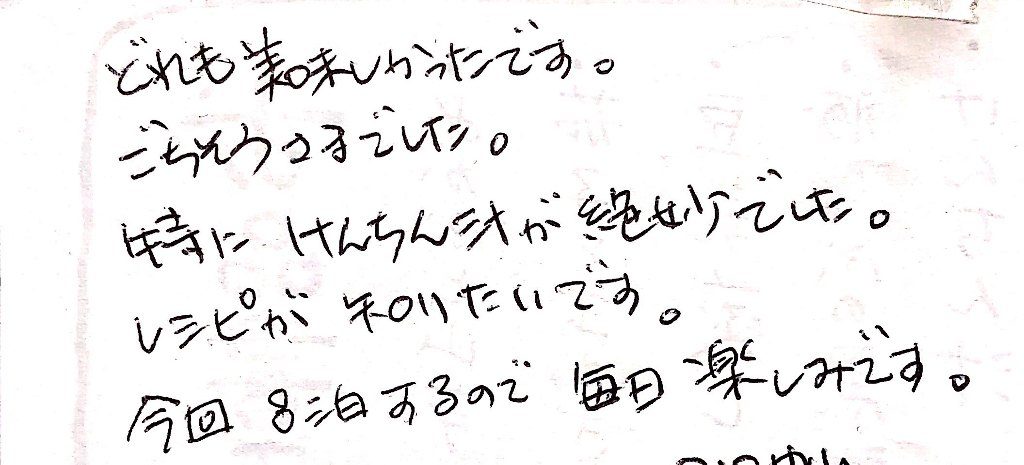 どれも美味しかったです。
ごちそうさまでした。
特にけんちん汁が絶妙でした。
レシピが知りたいです。
今回8泊するので毎日楽しみです。